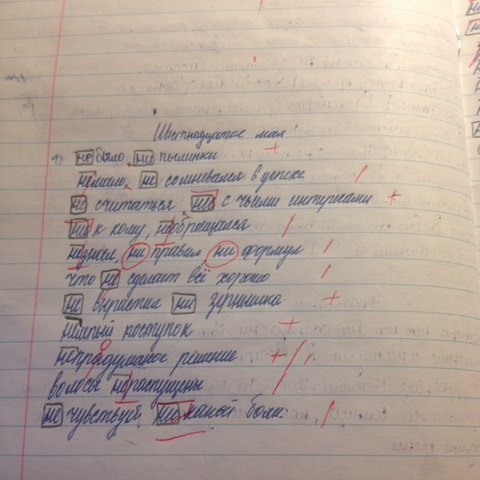 Шестнадцатое мая
1) не было, ни пылинки
немало, не сомневался в успехе
не считаться ни с чьими интересами
ни к кому, не обращался
не знал, ни правил, ни формул
что не сделает всё хорошо
не вырастил ни зёрнышка
нелепый поступок
непродуманое решение
волосы нераспущены
не чувствуй, ни какой боли